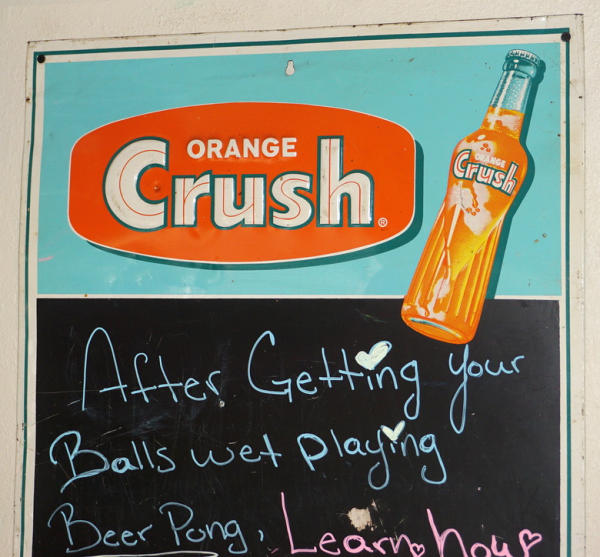 ORANGE
Crush®
ORANGE
Crush
After Getting your
Balls wet playing
Beer Pong,
Learn how